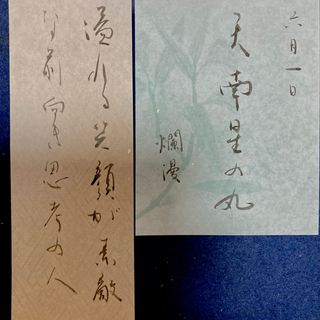 六月一日
天南星の丸
爛漫
溢れる笑顔が素敵
な前向き思考の人